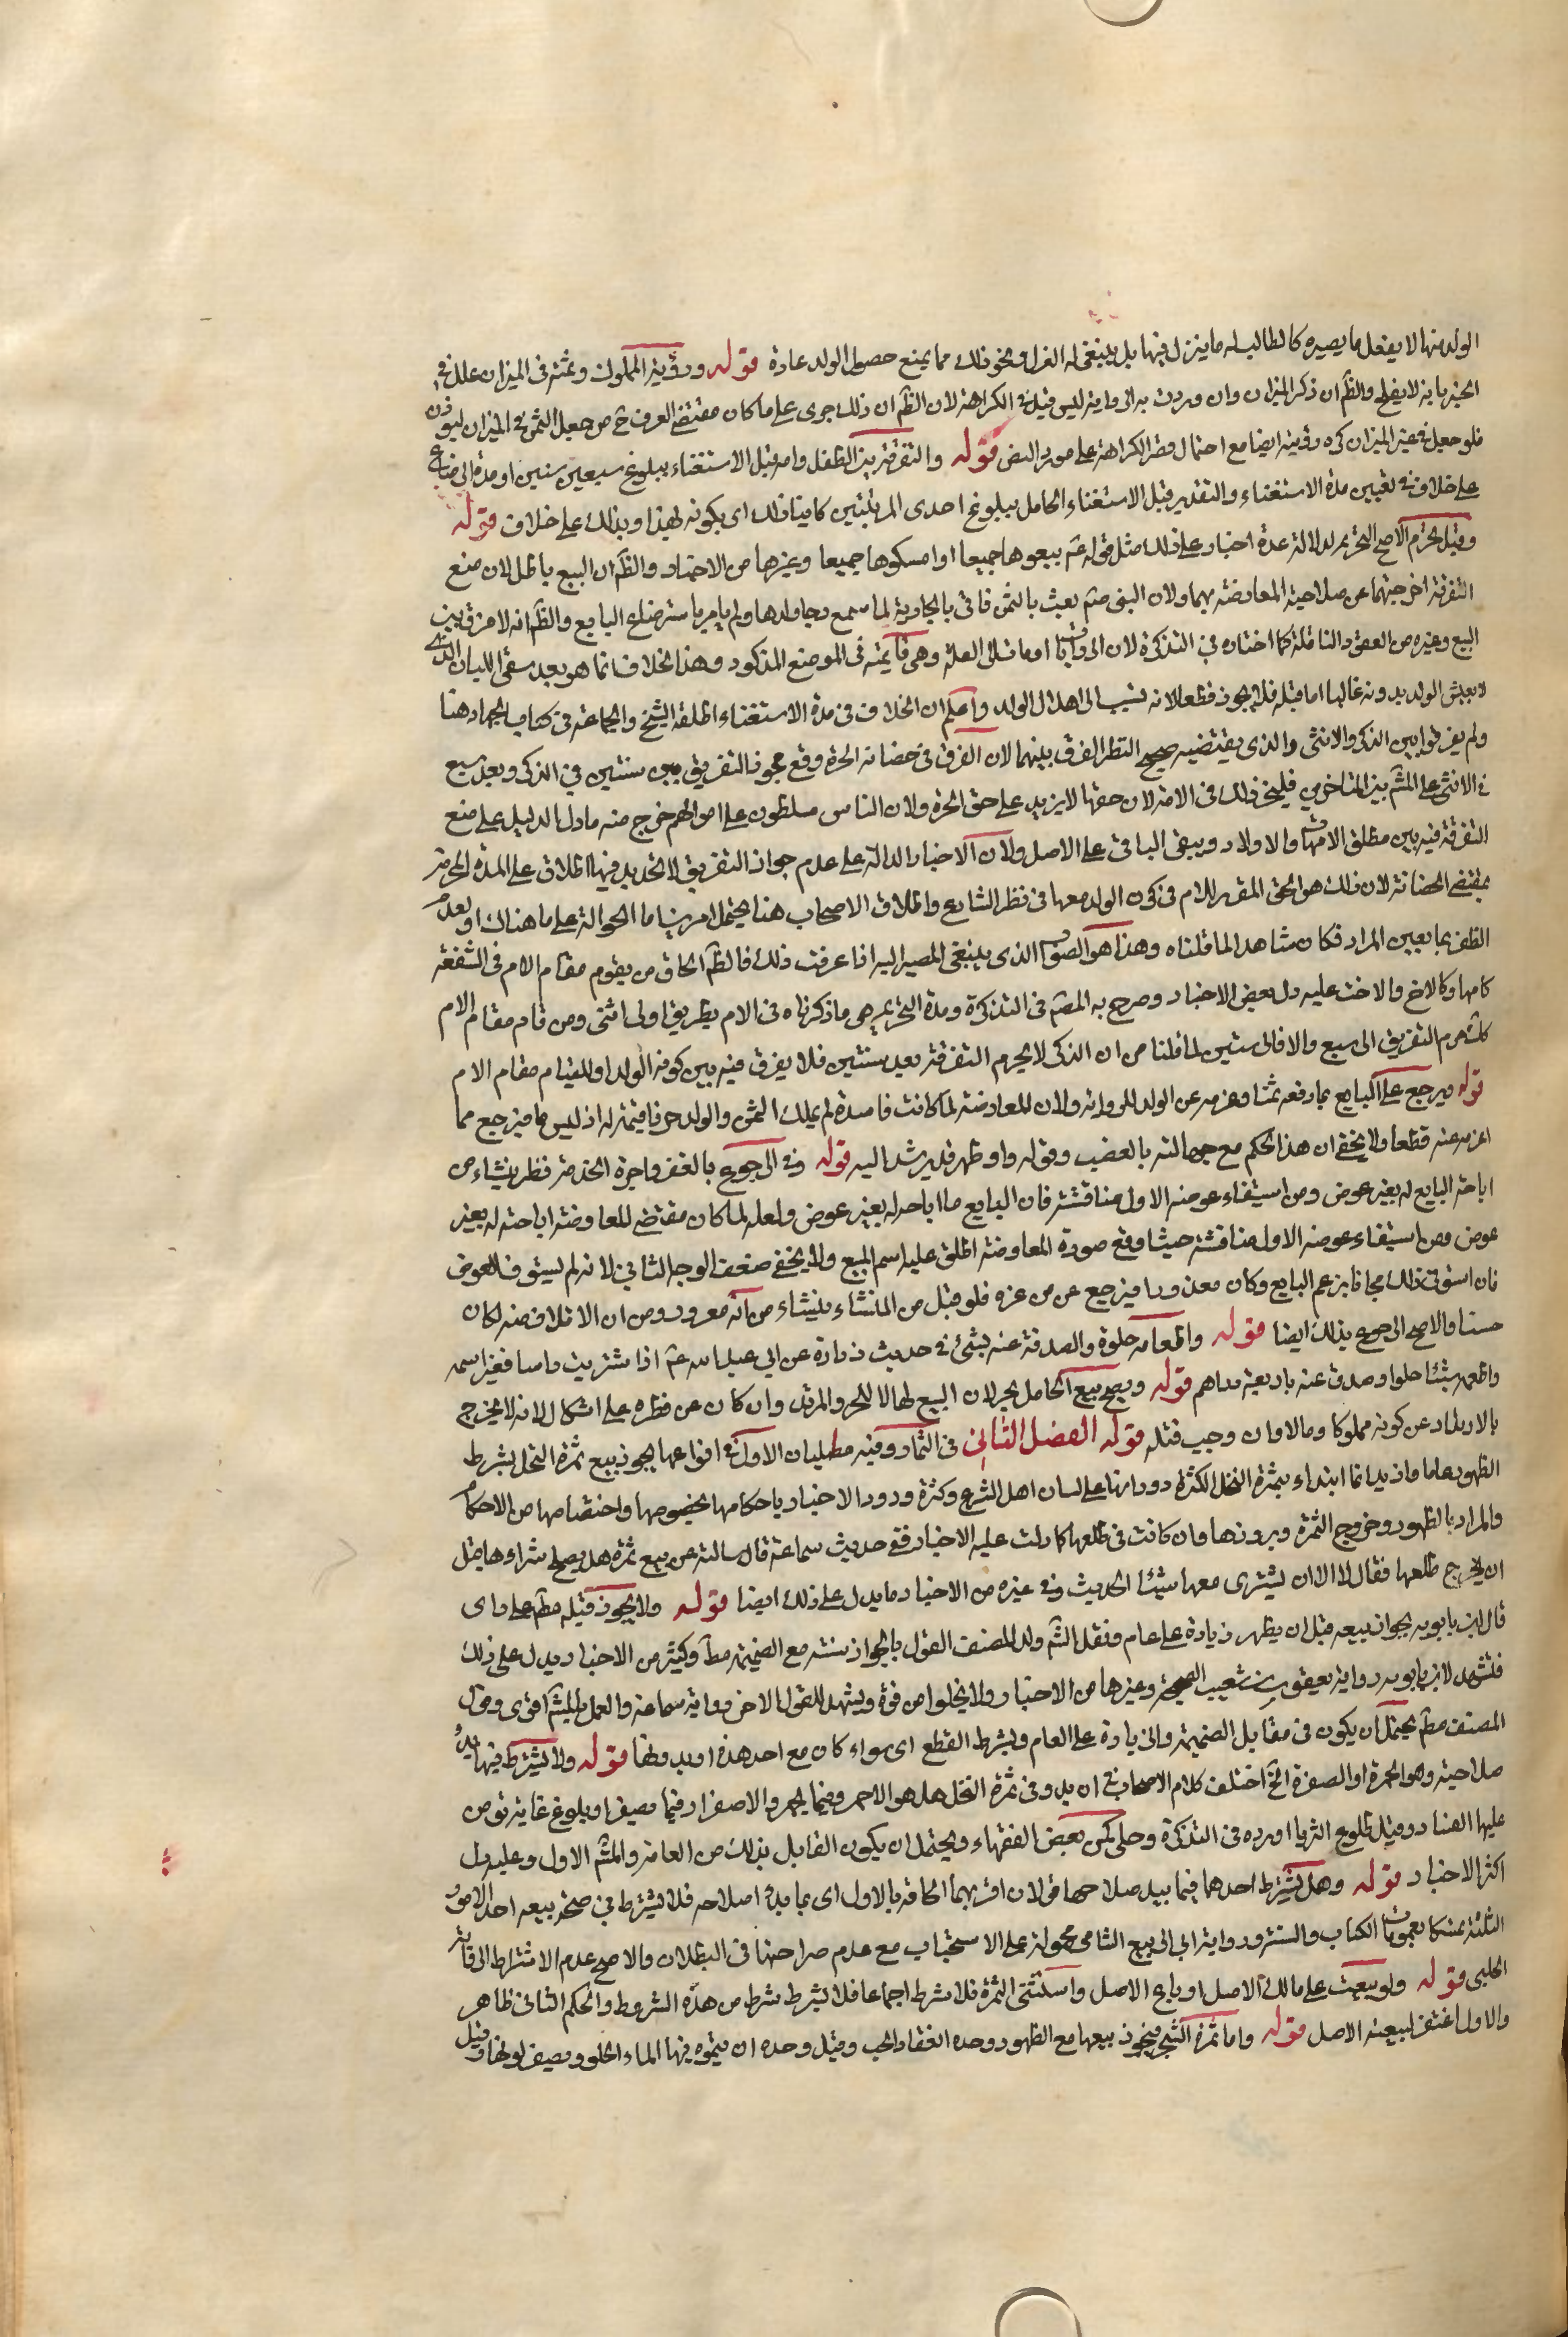 الولد منها لا يفعل ما يصيره كالطالب له ما ينزل فيها بل ينبغي له العزل ونحو ذلك مما يمنع حصول الولد عادة قوله ورؤية المملوك ثمنه في الميزان علل في
الخبر بانه لا يفلح والظ ان ذكر الميزان وان وردت به الرواية ليس قيدا في الكراهة لان الظ ان ذلك جرى على ما كان مقتضى العرف ح من جعل الثمن في الميزان ليوزن
فلو جعل في غير الميزان كره رؤيته ايضا مع احتمال قصر الكراهة على مورد النص قوله والتفرقة بين الطفل وامه قبل الاستغناء ببلوغ سبع سنين او مدة الرضاع
على خلاف في تعيين مدة الاستغناء والتقدير قبل الاستغناء الحاصل ببلوغ احدى المرتبتين كائنا ذلك اى بكونه لهذا وبذلك على خلاف قوله
وقيل يحرم الاصح التحريم لدلالة عدة اخبار على ذلك مثل قوله ع بيعوهما جميعا او امسكوهما جميعا وغيرها من الاخبار والظ ان البيع باطل لان منع
التفرقة اخرجتهما عن صلاحية المعاوضة بهما ولان النبي ص بعث بالثمن فاتى بالجارية لما سمع بكاء ولدها ولم يامر باسترضاء البايع والظ انه لا فرق بين
البيع وغيره من العقود الناقلة كما اختاره في التذكرة لان الروايات اومات الى العلة وهى قائمة في الموضع المذكور وهذا الخلاف انما هو بعد سقى اللبا الذي
لا يعيش الولد بدونه غالبا اما قبله فلا يجوز قطعا لانه تسبب الى اهلاك الولد واعلم ان الخلاف في مدة الاستغناء اطلقه الشيخ والجماعة في كتاب الجهاد وهنا
ولم يفرقوا بين الذكر والانثى والذى يقتضيه صحيح النظر الفرق بينهما لان الفرق في حضانة الحرة وقع فجوز التفريق بعد سنتين في الذكر وبعد سبع
في الانثى على المش بين المتاخرين فليجز ذلك في الامة لان حقها لا يزيد على حق الحرة ولان الناس مسلطون على اموالهم خرج منه ما دل الدليل على منع
التفرقة فيه بين مطلق الامهات والاولاد ويبقى الباقي على الاصل ولان الاخبار الدالة على عدم جواز التفريق لا تحديد فيها اطلاق على المدة المحرمة
بمقتضى الحضانة لان ذلك هو الحق المقرر للام في كون الولد معها في نظر الشارع واطلاق الاصحاب هنا يحتمل امرين اما الحوالة على ما هناك او بعدم
الظفر بما يعين المراد فكان شاهدا لما قلناه وهذا هو الصواب الذى ينبغى المصير اليه اذا عرفت ذلك فالظ الحاق من يقوم مقام الام في الشفقة
كامها وكالاخ والاخت عليه دل بعض الاخبار وصرح به المص في التذكرة ومدة التحريم هى ما ذكرناه في الام بطريق اولى انثى ومن قام مقام الام
كك حرم التفريق الى سبع والا فالى سنتين لما قلنا من ان الذكر لا يحرم التفرقة بعد سنتين فلا يفرق فيه بين كونه الولد او للقيام مقام الام
قوله ويرجع على البايع بما دفعه ثمنا وغرمه عن الولد للرواية ولان المعاوضة لما كانت فاسدة لم يملك الثمن والولد حر فاقيمته له اذ ليس فيرجع مما
اغرمه عنه قطعا ولا يخفى ان هذا الحكم مع جهالته بالغصب وقوله واو ظهر قد يرشد اليه قوله وفي الرجوع بالعقر واجرة الخدمة نظر ينشاء من
اباحة البايع له بغير عوض ومن استيفاء عوضه الاول مناقشته فان البايع ما اباحه له بغير عوض ولعله لما كان مقتضى المعاوضة اباحته له بغير
عوض ومن استيفاء عوضه الاول مناقشته حيث اوقع صورة المعاوضة اطلق عليه اسم المبيع ولا يخفى ضعف الوجه الثاني لانه لم يستوف العوض
فان استوفى ذلك مجانا بزعم البايع وكان مغرورا فيرجع على من غره فلو قيل من المنشاء ينشاء من انه مغرور ومن ان الاتلاف منه لكان
حسنا والاصح الرجوع بذلك ايضا قوله واطعامه حلوة والصدقة عنه بشئ في حديث زرارة عن ابي عبدالله ع اذا اشتريت راسا فغير اسمه
واطعمه شيئا حلوا وصدق عنه باربعة دراهم قوله ويصح بيع الحامل بحر لان البيع لها لا للحر والمرتد وان كان عن فطرة على اشكال لانه لا يخرج
بالارتداد عن كونه مملوكا ومالا وان وجب قتله قوله الفصل الثانى في الثمار وفيه مطلبان الاول في انواعها يجوز بيع ثمرة النخل بشرط
الظهور عاما وازيد انما ابتداء بثمرة النخل لكثرة دورانها على لسان اهل الشرع وكثرة ورود الاخبار باحكامها بخصوصها واختصاصها من الاحكام
والمراد بالظهور خروج الثمرة وبروزها وان كانت في طلعها كما دلت عليه الاخبار ففي حديث سماعة قال سالته عن بيع ثمرة هل يصلح شراءها قبل
ان يخرج طلعها فقال لا الا ان يشترى معها شيئا الحديث وفي غيره من الاخبار ما يدل على ذلك ايضا قوله ولا يجوز قبله مط على راى
قال ابن بابويه بجواز بيعه قبل ان يظهر زيادة على عام ونقل الش ولد المصنف القول بالجواز سنته مع الضميمة مط وكثير من الاخبار يدل على ذلك
فتشهد لابن بابويه رواية يعقوب بن شعيب الصحيحة وغيرها من الاخبار ولا يخلو من قوة ويشهد للقول الاخر رواية سماعة والعمل بالمش اقوى وقول
المصنف مط يحتمل ان يكون في مقابل الضميمة والزيادة على العام وبشرط القطع اى سواء كان مع احد هذه او بدونها قوله ولا يشترط فيها بدو
صلاحية وهو الحمرة او الصفرة الخ اختلف كلام الاصحاب في ان بدو في ثمرة النخل هل هو الاحمر فيما يحمر والاصفرار فيما يصفر او بلوغ غاية تؤمن
عليها الفساد وقيل طلوع الثريا اورده في التذكرة وحكى عن بعض الفقهاء ويحتمل ان يكون القايل بذلك من العامة والمش الاول وعليه دل
اكثر الاخبار قوله وهل يشترط احدهما فيما بيد صلاحها قولان اقربهما الحاقه بالاول اى بما بدا صلاحه فلا يشترط في صحة بيعه احد الامور
الثلثة تمسكا بعمومات الكتاب والسنة ورواية ابي الربيع الشامى محمولة على الاستحباب مع عدم صراحتها في البطلان والاصح عدم الاشتراط الرقابة
الحلبى قوله ولو بيعت على مالك الاصل او باع الاصل واستثنى الثمرة فلا شرط اجماعا فلا يشترط شرط من هذه الشروط والحكم الثانى ظاهر
والاول اغتفر لتبعية الاصل قوله واما ثمرة الشجر فيجوز بيعها مع الظهور وحده انعقاد الحب وقيل وحده ان يتموه فيها الماء الحلو ويصفر لونها وقيل